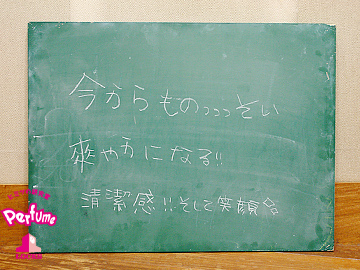 今からものっっっそい
爽やかになる!!
清潔感!!そして笑顔
Perfume